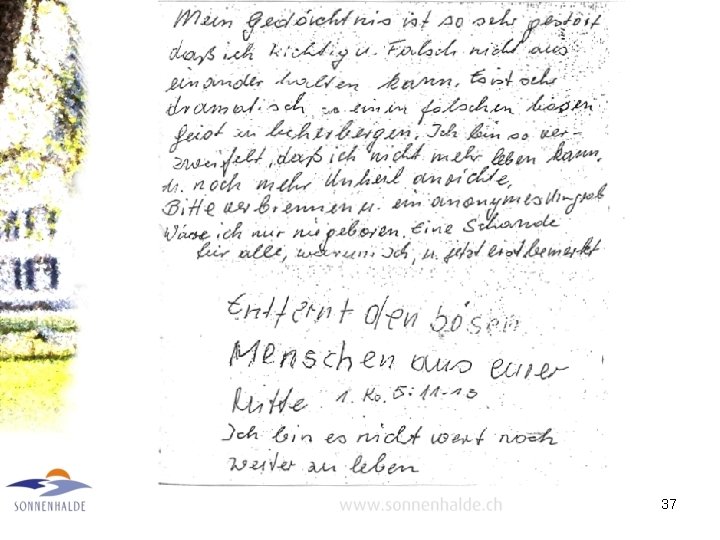 Mein Gedächtnis ist so sehr gestört
daß ich Richtig u. Falsch nicht aus
einander halten kann. Es ist sehr
dramatisch so einen falschen bösen
Geist zu beherbergen. Ich bin so ver-
zweifelt, daß ich nicht mehr leben kann,
u. noch mehr Unheil anrichte,
Bitte verbrennen u. ein anonymes Urngrab
Wäre ich nur nie geboren. Eine Schande
für alle, warum ich, u. jetzt erst bemerkt
Entfernt den bösen
Menschen aus eurer
Mitte 1. Ko. 5:11-13
Ich bin es nicht wert noch
weiter zu leben
SONNENHALDE
www.sonnenhalde.ch
37